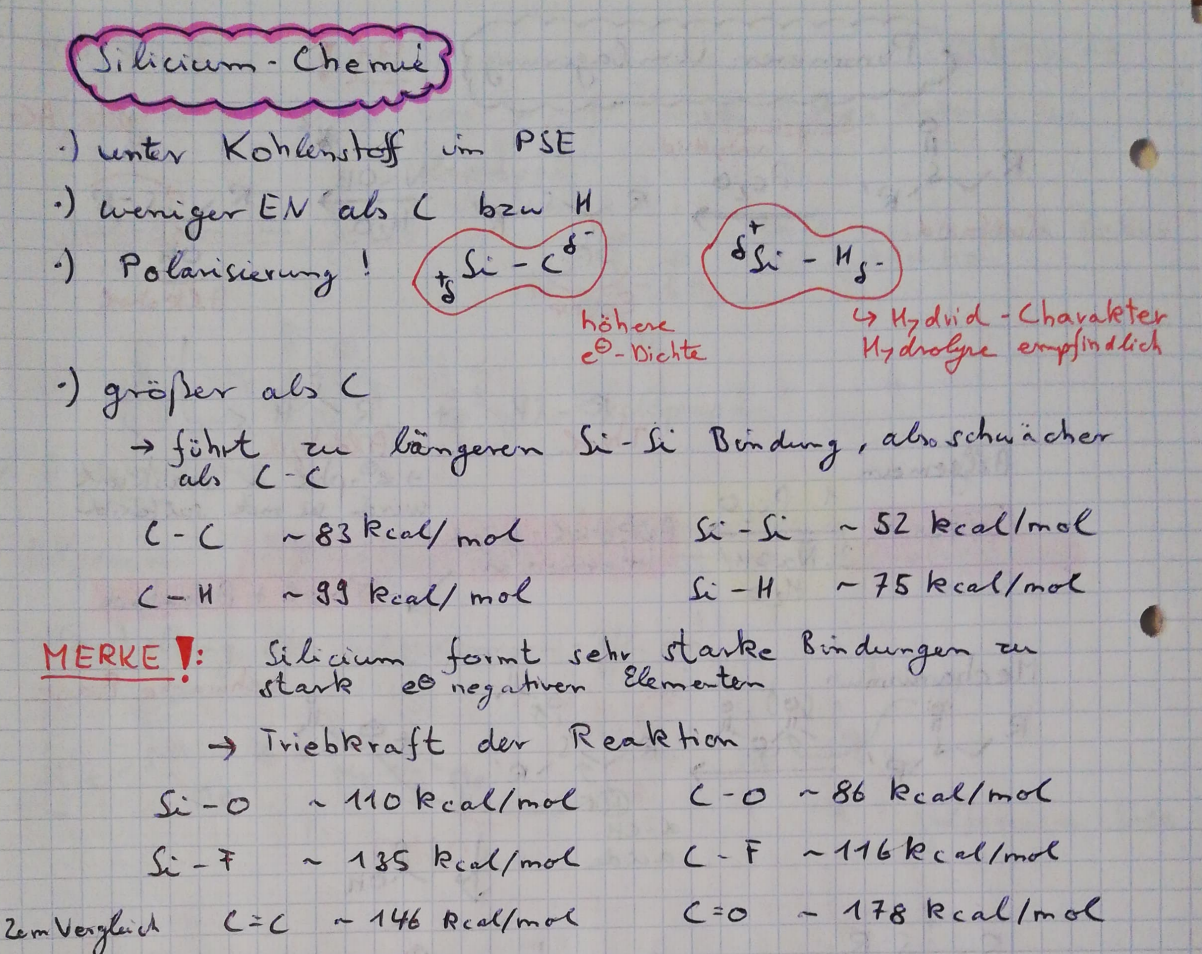 Silicium-Chemie
·) unter Kohlenstoff im PSE
·) weniger EN als C bzw H
·) Polarisierung! δ+ Si - C δ- δ+ Si - H δ-
höhere ↳ Hydrid-Charakter
e⊖-Dichte Hydrolyse empfindlich
·) größer als C
→ führt zu längeren Si-Si Bindung, also schwächer
als C-C
C-C ~83 kcal/mol Si-Si ~52 kcal/mol
C-H ~99 kcal/mol Si-H ~75 kcal/mol
MERKE!: Silicium formt sehr starke Bindungen zu
stark e⊖ negativen Elementen
→ Triebkraft der Reaktion
Si-O ~110 kcal/mol C-O ~86 kcal/mol
Si-F ~135 kcal/mol C-F ~116 kcal/mol
Zum Vergleich C=C ~146 kcal/mol C=O ~178 kcal/mol